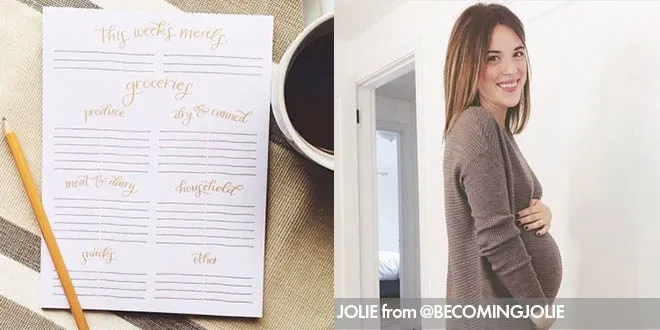 this week's meals
groceries
produce
dry & canned
meat & diary
household
snacks
other
JOLIE from @BECOMINGJOLIE